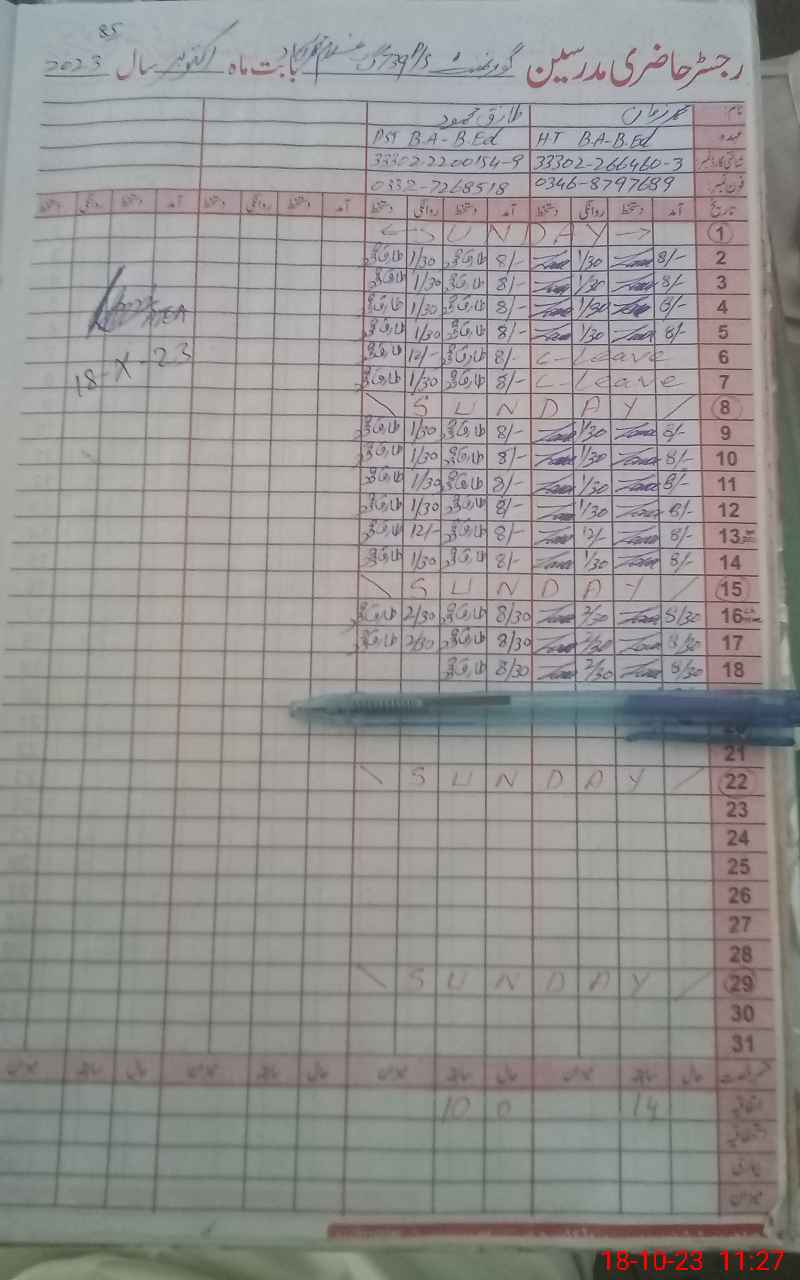 85
رجسٹر حاضری مدرسین گورنمنٹ P/S 739 گ ب بابت ماہ اکتوبر سال 2023
نام: محمد زمان طارق محمود
عہدہ HT B.A-B.Ed PST B.A-B.Ed
شناختی کارڈ نمبر 33302-266460-3 33302-2200154-9
فون نمبر: 0346-8797689 0332-7268518
تاریخ آمد دستخط روانگی دستخط آمد دستخط روانگی دستخط آمد دستخط روانگی دستخط آمد دستخط روانگی دستخط
1 ← SUNDAY →
2 8/- 1/30 8/- طارق 1/30 طارق
3 8/- 1/30 8/- طارق 1/30 طارق
4 8/- 1/30 8/- طارق 1/30 طارق
5 8/- 1/30 8/- طارق 1/30 طارق
6 C-Leave 8/- طارق 12/- طارق
7 C-Leave 8/- طارق 1/30 طارق
8 SUNDAY
9 8/- 1/30 8/- طارق 1/30 طارق
10 8/- 1/30 8/- طارق 1/30 طارق
11 8/- 1/30 8/- طارق 1/30 طارق
12 8/- 1/30 8/- طارق 1/30 طارق
13 8/- 12/- 8/- طارق 12/- طارق
14 8/- 1/30 8/- طارق 1/30 طارق
15 SUNDAY
16 8/30 2/30 8/30 طارق 2/30 طارق
17 8/30 2/30 8/30 طارق 2/30 طارق
18 8/30 2/30 8/30 طارق
20
21
22 SUNDAY
23
24
25
26
27
28
29 SUNDAY
30
31
AEA
18-X-23
حال سابقہ میزان حال سابقہ میزان حال سابقہ میزان حال سابقہ میزان
اتفاقیہ 14 0 10
میزان
18-10-23 11:27